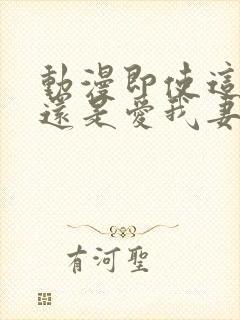 動漫即使這
還是愛我妻
有河聖